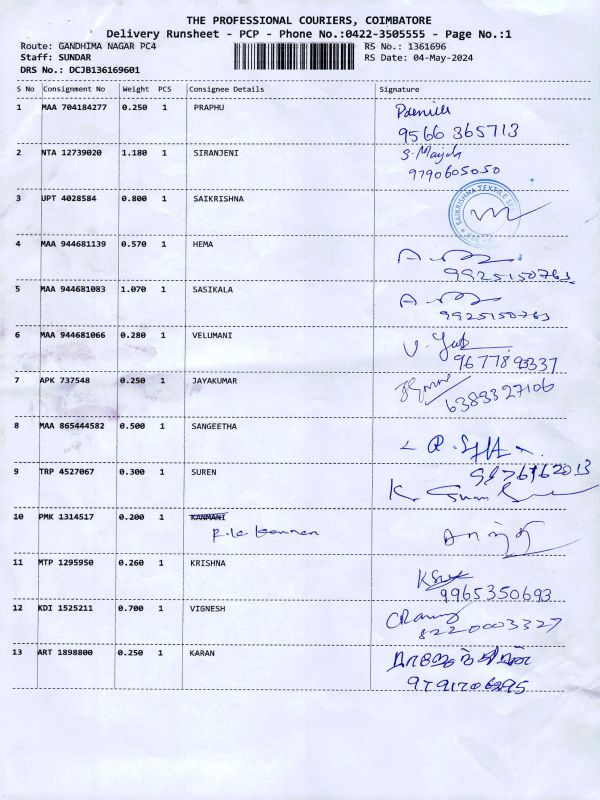 THE PROFESSIONAL COURIERS, COIMBATORE
Delivery Runsheet - PCP - Phone No.:0422-3505555 - Page No.:1
Route: GANDHIMA NAGAR PC4 RS No.: 1361696
Staff: SUNDAR RS Date: 04-May-2024
DRS No.: DCJB136169601
S No Consignment No Weight PCS Consignee Details Signature
1 MAA 704184277 0.250 1 PRAPHU
9566 365713
2 NTA 12739020 1.180 1 SIRANJENI
9790605050
3 UPT 4028584 0.800 1 SAIKRISHNA
SAIKRISHNA TEXTILE
4 MAA 944681139 0.570 1 HEMA
9925150763
5 MAA 944681083 1.070 1 SASIKALA
9925150763
6 MAA 944681066 0.280 1 VELUMANI
9677893337
7 APK 737548 0.250 1 JAYAKUMAR
6383327106
8 MAA 865444582 0.500 1 SANGEETHA
9 TRP 4527067 0.300 1 SUREN
10 PMK 1314517 0.200 1 KANMANI
11 MTP 1295950 0.260 1 KRISHNA
9965350693
12 KDI 1525211 0.700 1 VIGNESH
8220003327
13 ART 1898800 0.250 1 KARAN
9791706295